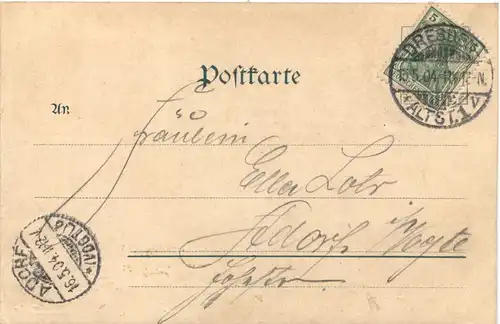 5
DRESDEN
15.5.04.11-12N.
*ALTST.1 v
Postkarte
An
Fräulein
Ella Lohr
Adorf i/Vogtl
ADORF
16.5.04.
*(VOGTL.)